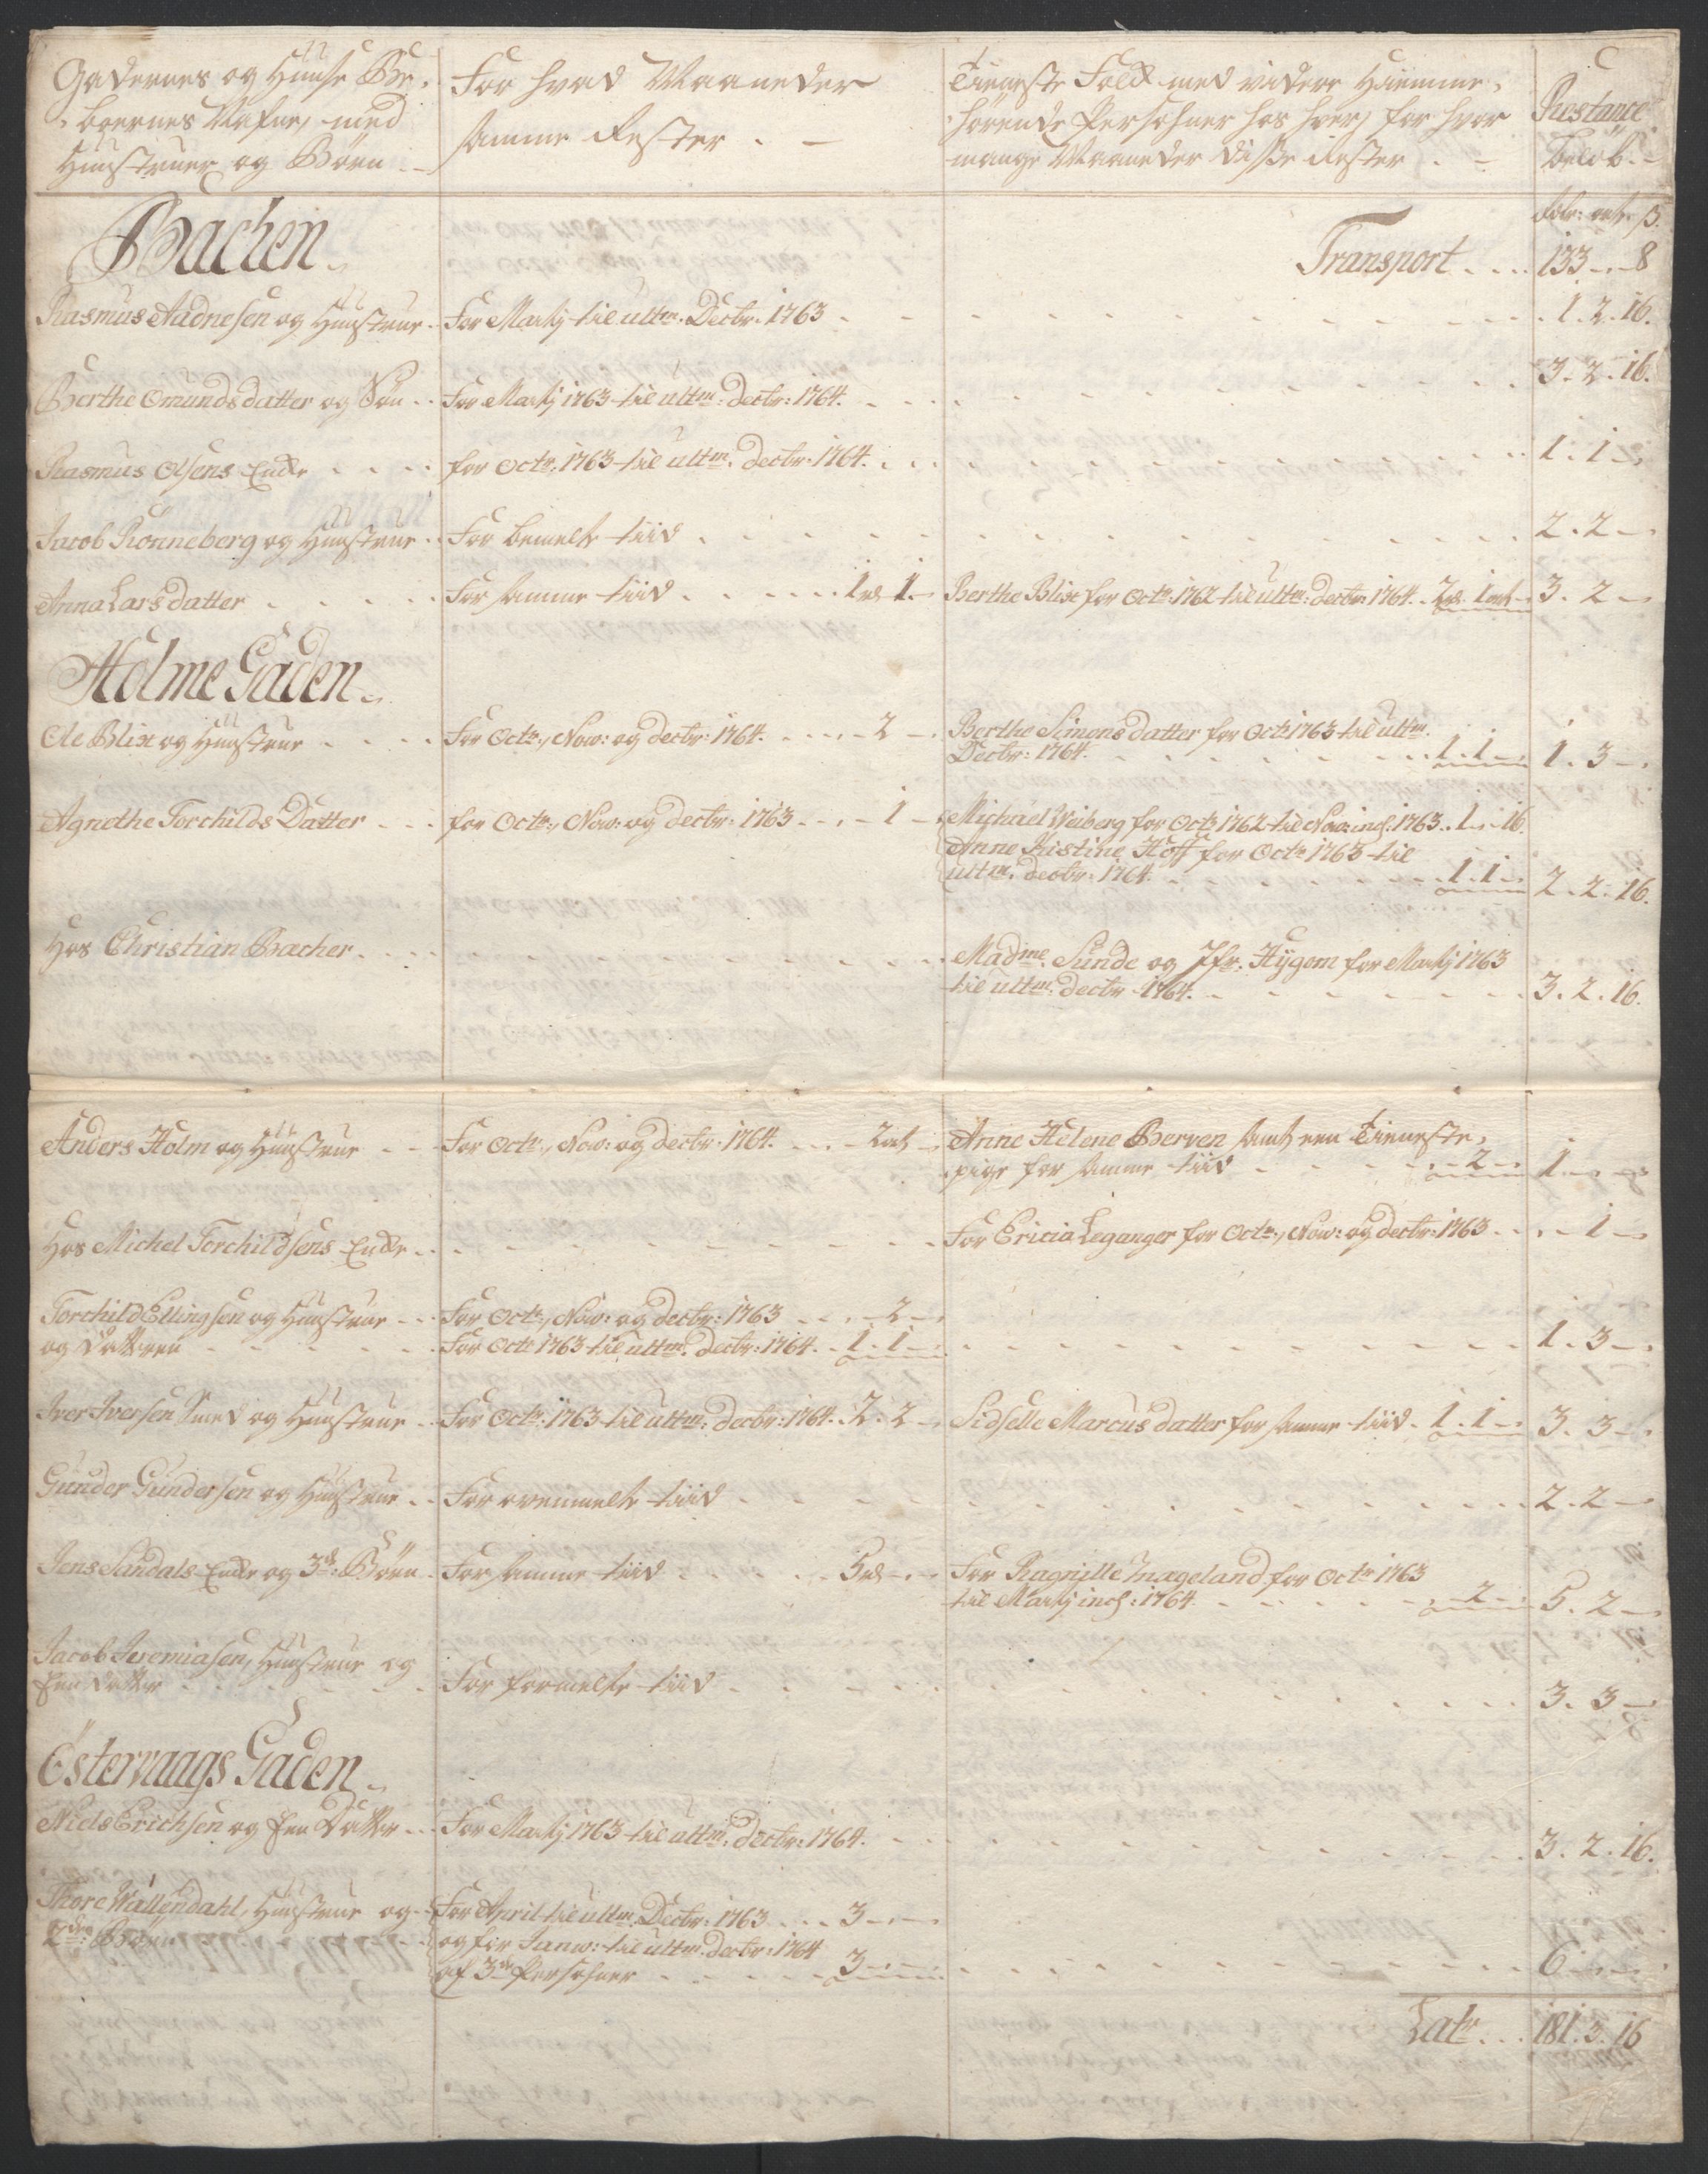 Gadernes og Huuse Be-
boernes Nafne, med
Hustruer og Børn
For hvad Maaneder
samme Rester
Tieneste Folk med videre Hiemme-
hørende Persohner hos hver, for hvor
mange Maaneder disse Rester
Restance
Beløb.
Rdlr: ort. ß.
Bachen
Transport 133 - - 8
Rasmus Aadnesen og Hustrue For Martj til ultm. Decbr. 1763 1. 2. 16.
Berthe Omundsdatter og Søn For Martj 1763 til ultm. Decbr: 1764. 3. 2. 16.
Rasmus Olsens Enke for Octr. 1763 til ultm. Decbr. 1764. 1. 1 -
Jacob Rønneberg og Hustrue For bemelte tiid 2. 2 -
Anna Larsdatter For samme tiid 1 rd 1. - Berthe Blix for Octr. 1762 til ultm. Decbr. 1764. 2 rd. 1 ort - 3. 2 -
Holme Gaden
Ole Blix og Hustrue For Octr., Nov: og Decbr: 1764. 2 - Berthe Simonsdatter for Octr 1763 til ultm.
Decbr: 1764. 1. 1 - 1. 3 -
Agnethe Torchilds Datter for Octr., Nov: og Decbr: 1763 1 - Michael Weiberg for Octr 1762 til Nov: incl: 1763. 1. - 16.
Anne Kistine Hoff for Octr 1763 til
ultm. Decbr: 1764. 1. 1 - 2. 2. 16.
Hos Christian Bacher Madme. Sunde og Jfr. Hygom for Martj 1763
til ultm. Decbr 1764. 3. 2. 16.
Anders Holm og Hustrue For Octr., Nov: og Decbr. 1764. 2 ort - Anne Helene Berven samt een Tieneste-
pige for samme tiid 2 - 1 - -
Hos Michel Torchildsens Enke For Ericia Leganger for Octr., Nov: og Decbr: 1763 1 -
Torchild Ellingsen og Hustrue For Octr., Nov: og Decbr: 1763 2 -
og Datteren For Octr 1763 til ultm. Decbr: 1764. 1. 1 - 1. 3 -
Iver Iversen Smed og Hustrue For Octr: 1763 til ultm. Decbr: 1764. 2. 2 - Sidselle Marcusdatter for samme tiid 1. 1 - 3. 3 -
Gunder Gundersen og Hustrue For ovenmelte tiid 2. 2 -
Jens Sandals Enke og 3de: Børn For samme tiid 5 rd - - For Ragnille Inægeland for Octr 1763
til Martj incl: 1764. 2 - 5. 2 -
Jacob Jeremiasen, Hustrue og
Een Datter For formelte tiid 3. 3 -
Østervaags Gaden
Niels Erichsen og Een Datter For Martj 1763 til ultm. Decbr: 1764. 3. 2. 16.
Thore Wallendahl, Hustrue og For April til ultm. Decbr: 1763 3 - -
2de: Børn og for Janv: til ultm. Decbr: 1764
af 3de Persohner 3 - - 6 - -
Latr. 181. 3. 16